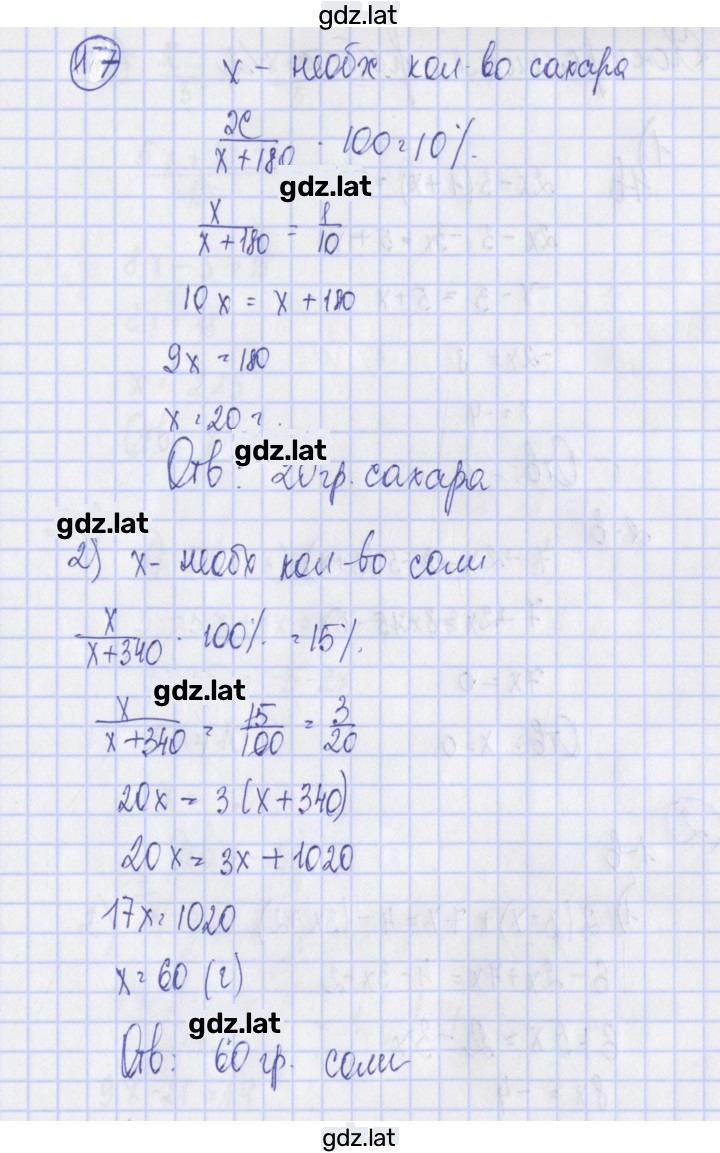 gdz.lat
1.7 x - необх. кол-во сахара
x/(x+180) · 100 = 10%.
gdz.lat
x/(x+180) = 1/10
10x = x + 180
9x = 180
x = 20 г.
gdz.lat
Отв: 20 гр. сахара
gdz.lat
2) x - необх кол-во соли
x/(x+340) · 100% = 15%.
gdz.lat
x/(x+340) = 15/100 = 3/20
20x = 3(x+340)
20x = 3x + 1020
17x = 1020
x = 60 (г)
gdz.lat
Отв: 60 гр. соли
gdz.lat